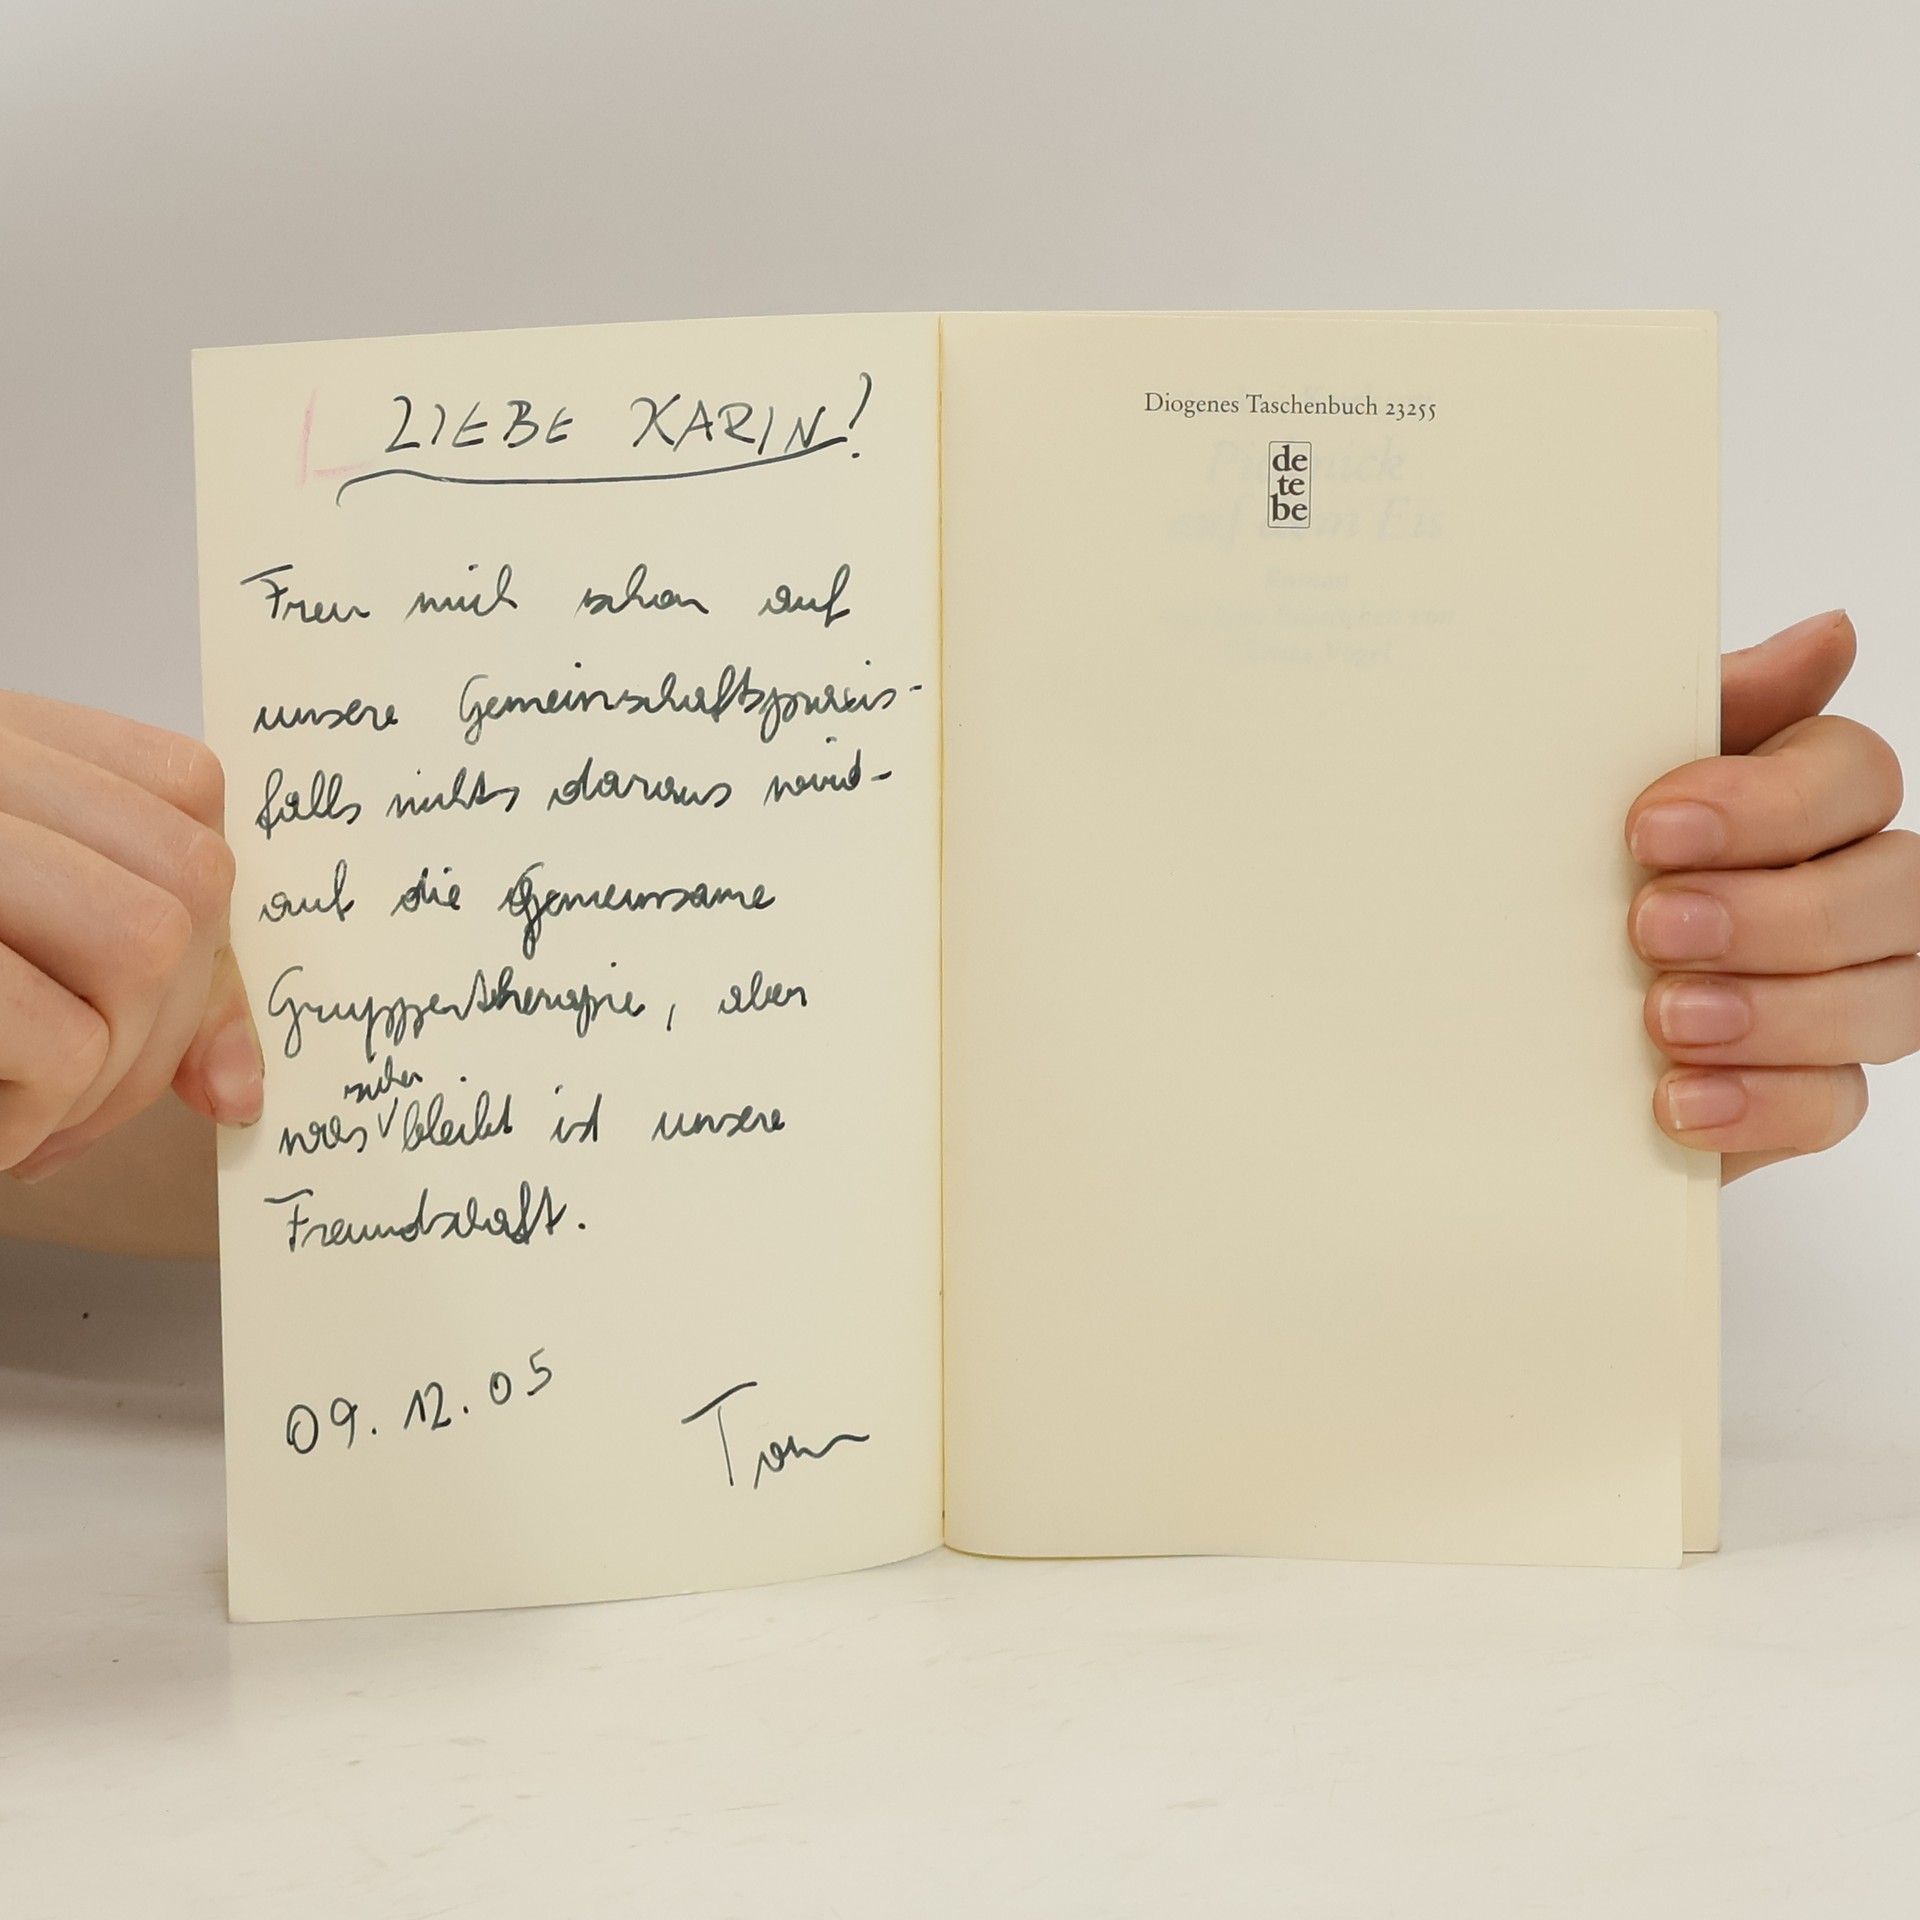 LIEBE KARIN!
Freu mich schon auf
unsere Gemeinschaftspraxis-
falls nichts daraus wird-
auf die Gemeinsame
Gruppentherapie, aber
sicher
was bleibt ist unsere
Freundschaft.
09.12.05
Tom
Diogenes Taschenbuch 23255
de
te
be
auf dem Eis
Roman